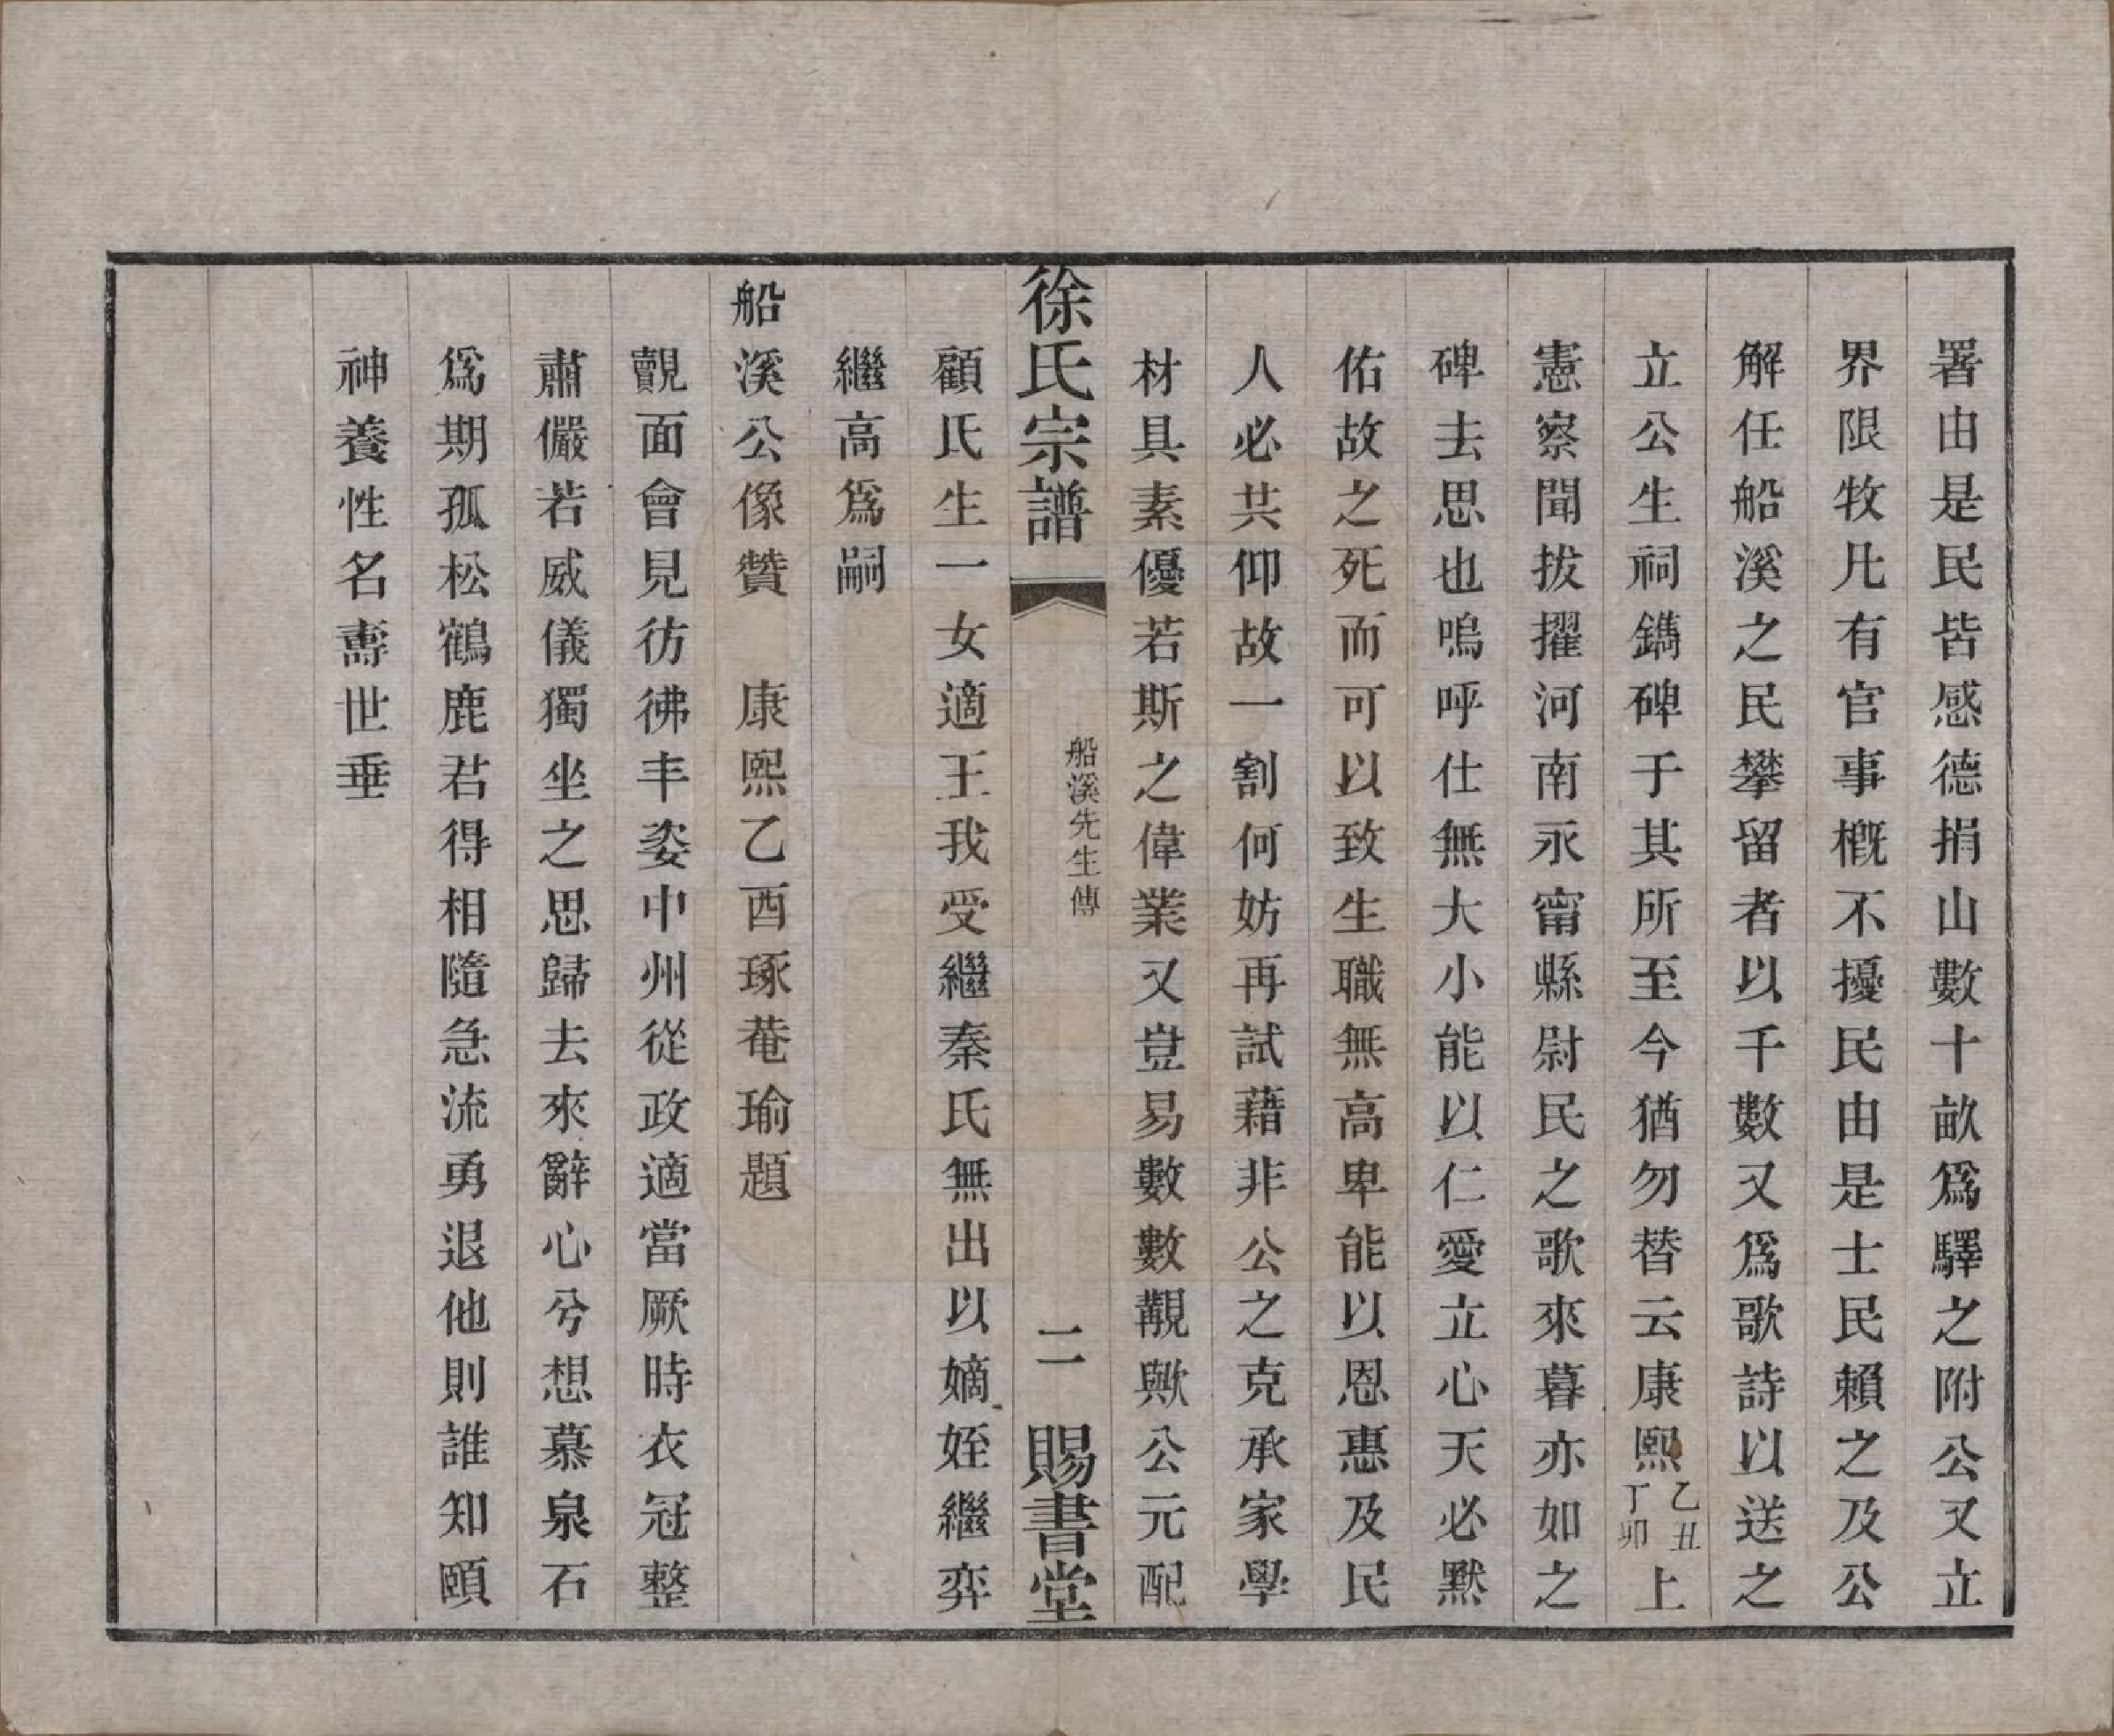 署由是民皆感德捐山數十畝爲驛之附公又立
界限牧凡有官事槪不擾民由是士民賴之及公
解任船溪之民攀留者以千數又爲歌詩以送之
立公生祠鐫碑于其所至今猶勿替云康熙乙丑丁卯上
憲察聞拔擢河南永甯縣尉民之歌來暮亦如之
碑去思也嗚呼仕無大小能以仁愛立心天必默
佑故之死而可以致生職無高卑能以恩惠及民
人必共仰故一割何妨再試藉非公之克承家學
材具素優若斯之偉業又豈易數數覯歟公元配
徐氏宗譜
船溪先生傳
二
賜書堂
顧氏生一女適王我受繼秦氏無出以嫡姪繼弈
繼高爲嗣
船溪公像贊　康熙乙酉琢菴瑜題
覿面會見彷彿丰姿中州從政適當厥時衣冠整
肅儼若威儀獨坐之思歸去來辭心兮想慕泉石
爲期孤松鶴鹿君得相隨急流勇退他則誰知頤
神養性名壽世垂